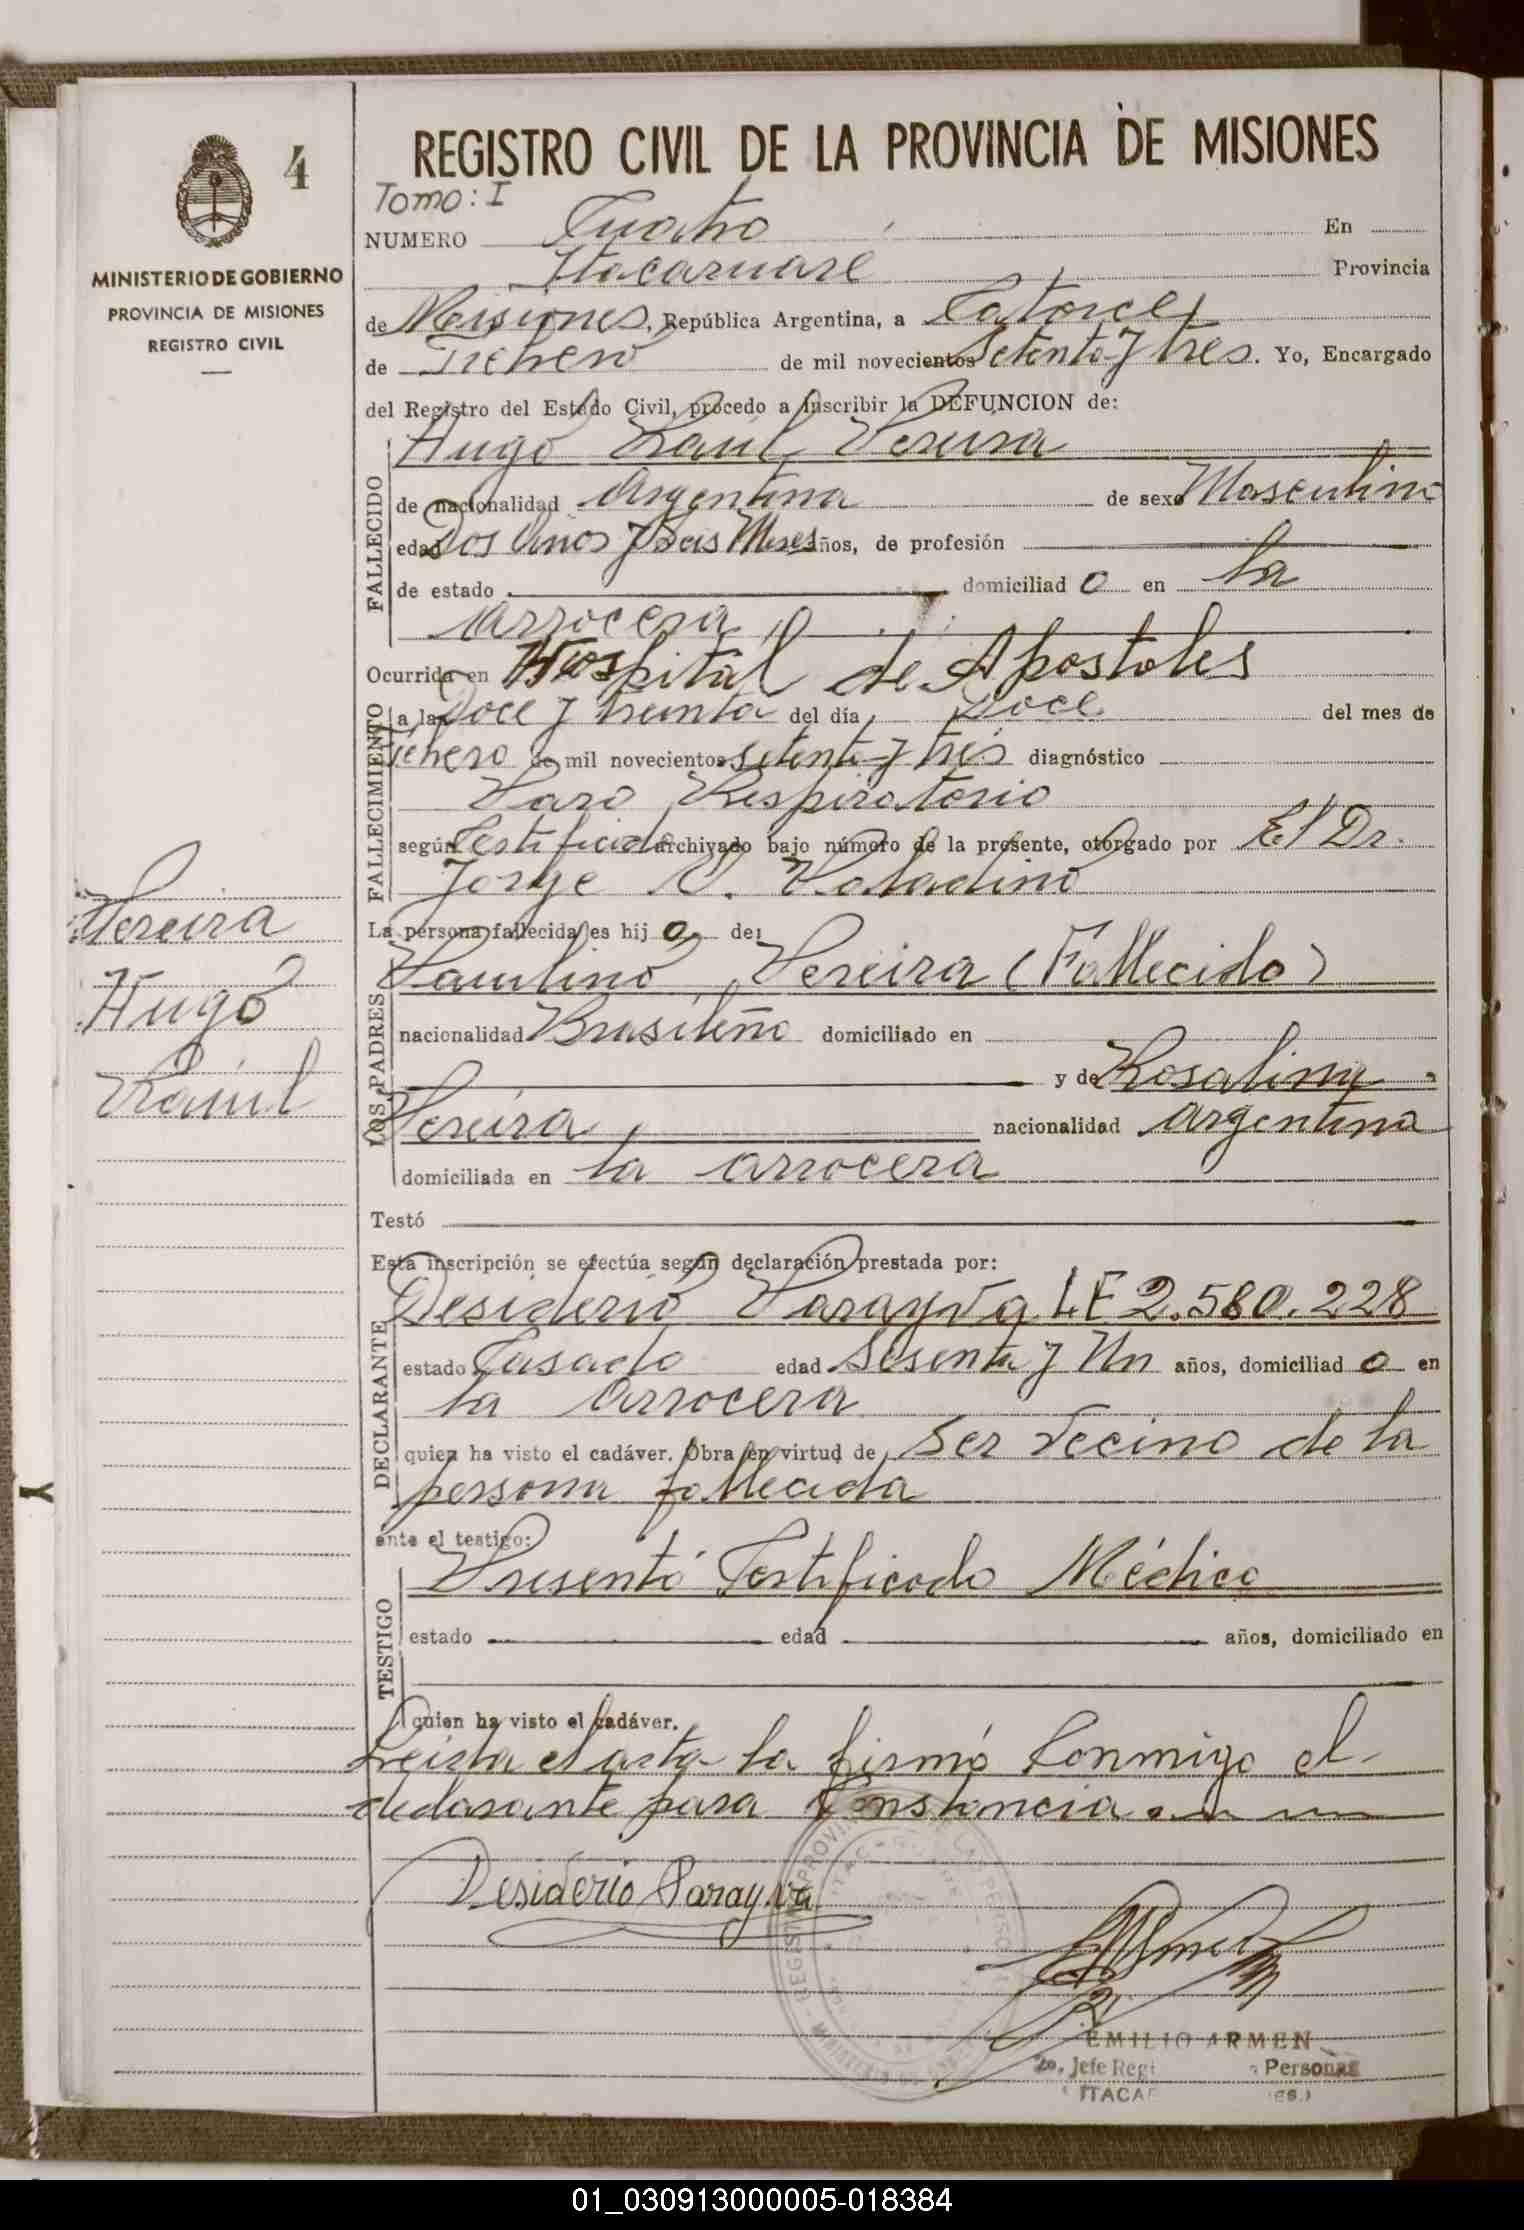 4
MINISTERIO DE GOBIERNO
PROVINCIA DE MISIONES
REGISTRO CIVIL
Pereira
Hugo
Raúl
REGISTRO CIVIL DE LA PROVINCIA DE MISIONES
Tomo: I
NUMERO Cuatro En
Itacaruaré Provincia
de Misiones, República Argentina, a Catorce
de Enero de mil novecientos Setenta y tres. Yo, Encargado
del Registro del Estado Civil, procedo a inscribir la DEFUNCION de:
Hugo Raúl Pereira
FALLECIDO
de nacionalidad Argentina de sexo Masculino
edad Dos Años y Seis Meses años, de profesión
de estado domiciliad o en la
Arrocera
Ocurrida en Hospital de Apostoles
FALLECIMIENTO
a las Doce y treinta del día Doce del mes de
Enero de mil novecientos Setenta y tres diagnóstico
Paro Respiratorio
según Certificado archivado bajo número de la presente, otorgado por El Dr.
Jorge Paladino
La persona fallecida es hij o de:
LOS PADRES
Paulino Pereira (Fallecido)
nacionalidad Brasileño domiciliado en
y de Rosalina
Pereira nacionalidad Argentina
domiciliada en la Arrocera
Testó
Esta inscripción se efectúa según declaración prestada por:
DECLARANTE
Desiderio Parayva L.E 2.580.228
estado Casado edad Sesenta y Un años, domiciliad o en
la Arrocera
quien ha visto el cadáver. Obra en virtud de Ser Vecino de la
persona fallecida
ante el testigo:
TESTIGO
Presentó Certificado Médico
estado edad años, domiciliado en
quien ha visto el cadáver.
Leida el acta la firmó Conmigo el
declarante para Constancia
Desiderio Parayva
EMILIO ARMEN
Jefe Regi Personas
ITACA
01_030913000005-018384